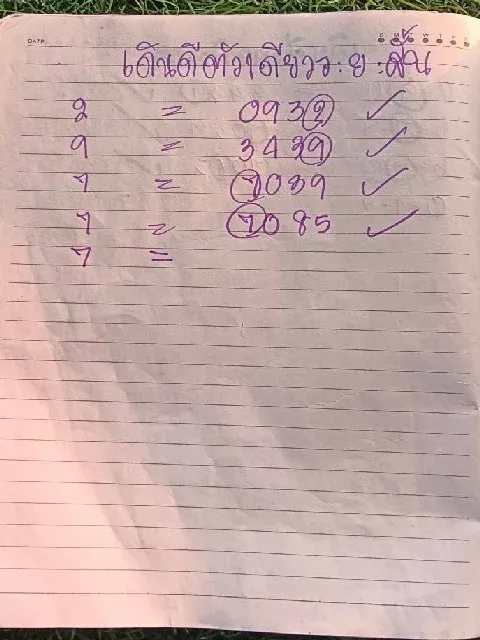 DATE
เดินดีตัวเดียวระยะสั้น
2 = 0932 ✓
9 = 3439 ✓
7 = 7089 ✓
7 = 7085 ✓
7 =